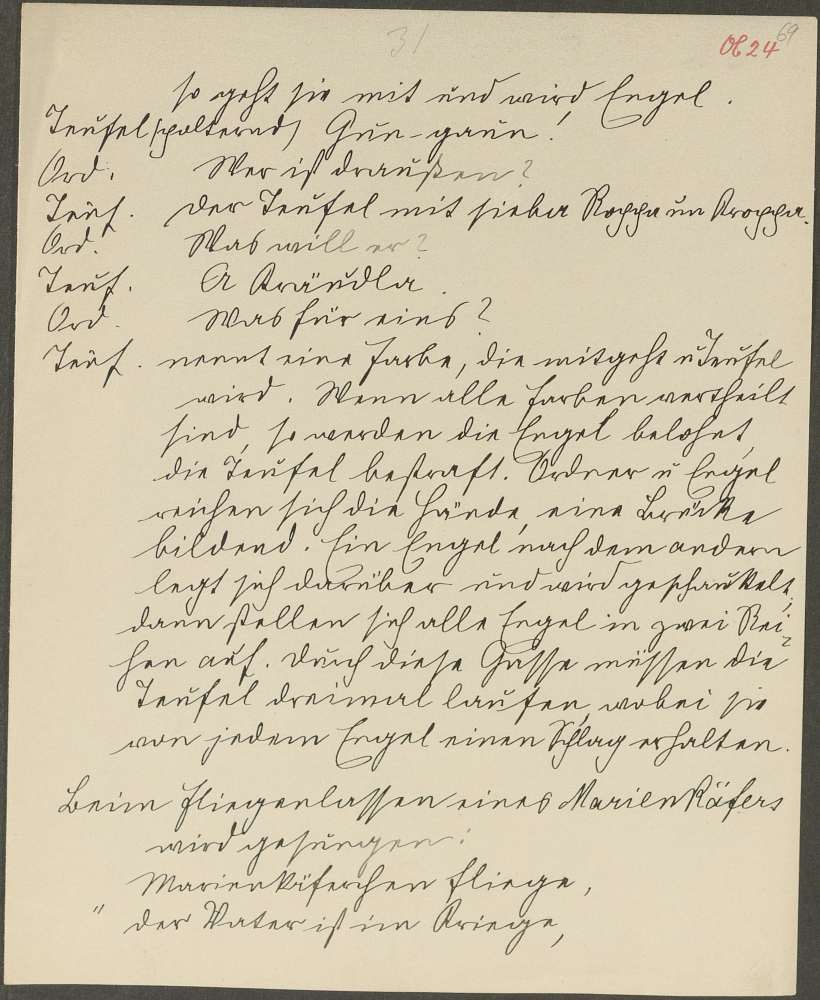 31
69
Ob 24
so geht sie mit und wird Engel.
Teufel (polternd) Gun-gaun!
Ord. Wer ist draußen?
Teuf. Der Teufel mit sieba Roppa un Kroppa.
Ord. Was will er?
Teuf. A Kräudla.
Ord. Was für eins?
Teuf. nennt eine Farbe, die mitgeht u Teufel
wird. Wenn alle Farben vertheilt
sind, so werden die Engel belohnt,
die Teufel bestraft. Ordner u Engel
reichen sich die Hände, eine Brücke
bildend. Ein Engel nach dem andern
legt sich darüber und wird geschaukelt,
dann stellen sich alle Engel in zwei Rei-
hen auf. Durch diese Gasse müssen die
Teufel dreimal laufen, wobei sie
von jedem Engel einen Schlag erhalten.
Beim Fliegenlassen eines Marienkäfers
wird gesungen:
Marienkäferchen fliege,
" der Vater ist im Kriege,